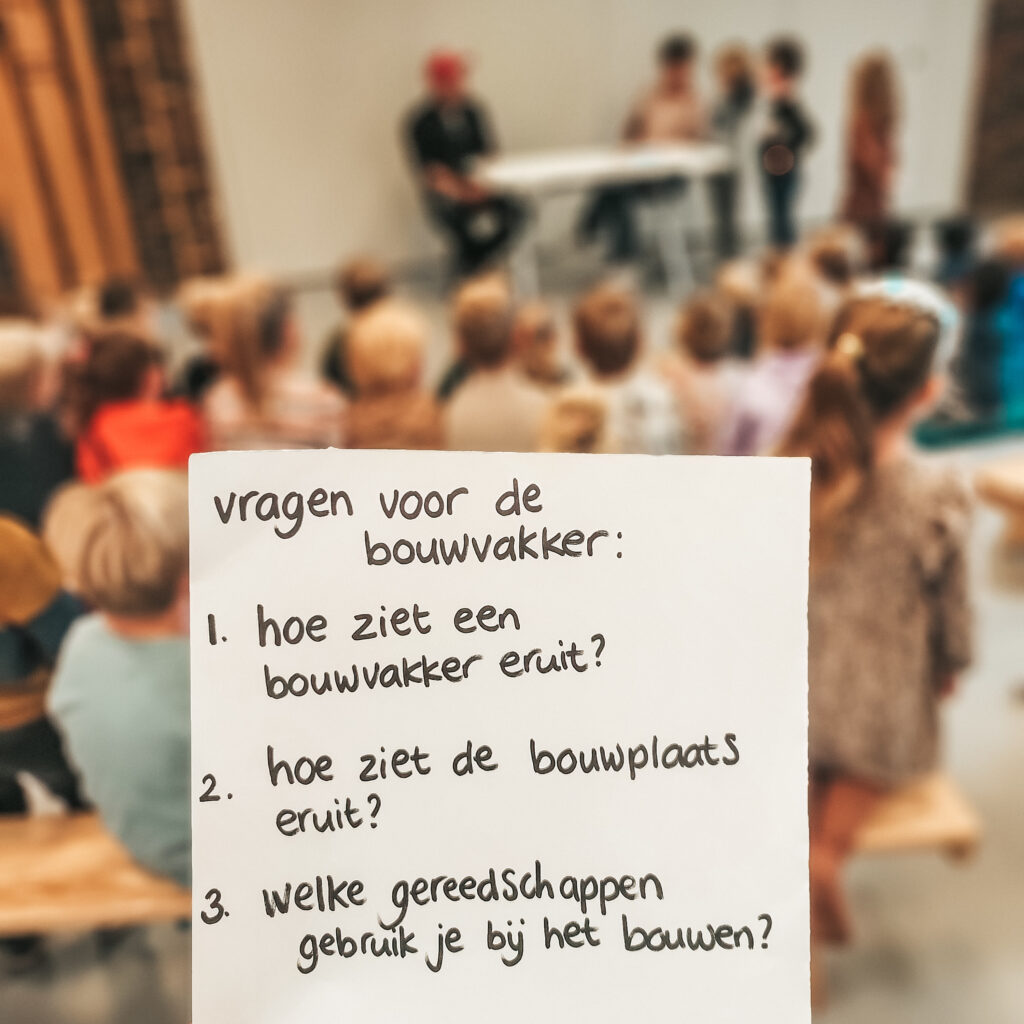 vragen voor de
bouwvakker:
1. hoe ziet een
bouwvakker eruit?
2. hoe ziet de bouwplaats
eruit?
3. welke gereedschappen
gebruik je bij het bouwen?